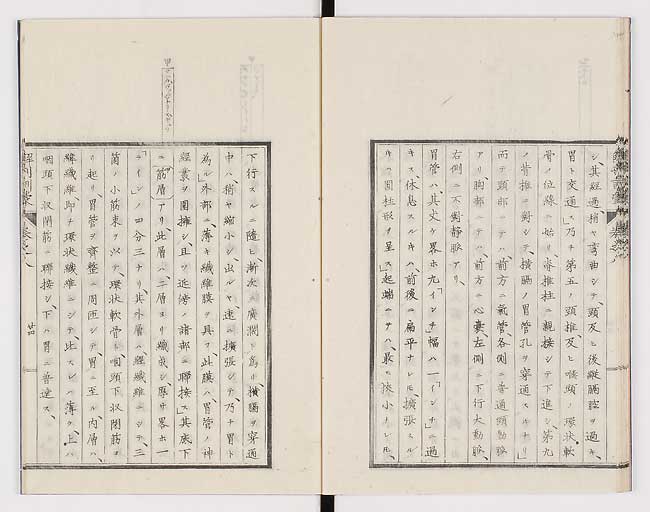 シ、其經過稍ヤ彎曲シテ、頸及ヒ後縱膈腔ヲ過キ、
胃ト交通ス」乃チ第五ノ頸椎、及ヒ喉頭ノ環状軟
骨ノ位線ニ始リ、脊推柱ニ親接シテ下進シ、第九
ノ脊推ニ對シテ、横膈ノ胃管孔ヲ穿通スルナリ」
而テ頸部ニテハ、前方ニ氣管各側ニ普通頸動脈
アリ胸部ニテハ、前方ニ心囊、左側ニ下行大動脈
右側ニ不對静脈アリ、
胃管ハ、其丈ケ畧ホ九「インチ」幅ハ一「インチ」ニ過
キス、休息スルキハ前後ニ扁平ナレモ、擴張スル
キハ圓柱形ヲ呈ス」起端ニテハ、最モ狹小ナレモ、
下行スルニ隨ヒ、漸次ニ廣濶ト為リ、横膈ヲ穿通
中ハ、稍ヤ縮小シ、出ルヤ速ニ擴張シテ乃チ胃ト
為ル」外部ニ、薄キ纖維膜ヲ具フ、此膜ハ、胃管ノ神
經叢ヲ圍擁シ、且ツ近傍ノ諸部ニ聯接ス」其底下
ニ筋層アリ此層ハ、二層ヨリ織成シ、厚サ畧ホ一
「ライン」ノ四分三ナリ」其外層ハ縱纖維ニシテ、三
箇ノ小筋束ヲ以テ、環状軟骨ト、咽頭下収閉筋ヨ
リ起リ、胃管ヲ齊整ニ周匝シテ、胃ニ至ル内層ハ、
緯纖維即チ環状纖維ニシテ、此ヨリハ薄ク、上ハ
咽頭下収閉筋ニ聯接シ、下ハ胃ニ普達ス、
解剖訓蒙